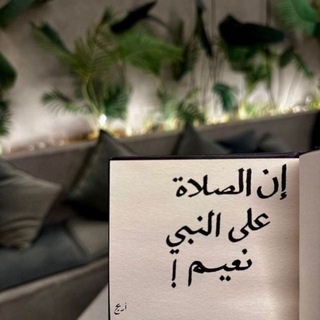 إن الصلاة
على النبي
نعيم !
أرجح